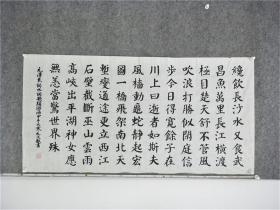 纔飲長沙水又食武
昌魚萬里長江橫渡
極目楚天舒不管風
吹浪打勝似閑庭信
步今日得寬餘子在
川上曰逝者如斯夫
風檣動龜蛇靜起宏
圖一橋飛架南北天
塹變通途更立西江
石壁截斷巫山雲雨
高峽出平湖神女應
無恙當驚世界殊
毛澤東詞水調歌頭游泳